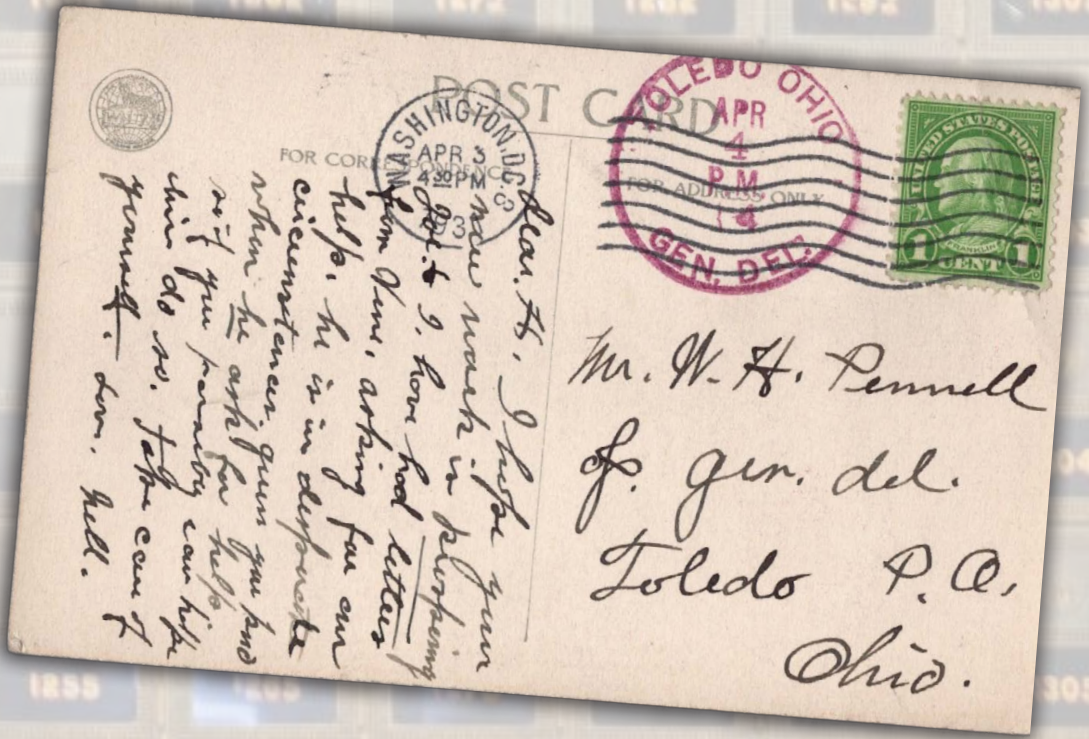 POST CARD
FOR CORRESPONDENCE
FOR ADDRESS ONLY
WASHINGTON, D.C. 3
APR 3
4 30 PM
193
TOLEDO OHIO
APR
4
P.M.
GEN. DEL.
UNITED STATES POSTAGE
FRANKLIN
1 CENT 1
Dear H, I hope your
new work is prospering
I have had letters
from Vene, asking for our
help, he is in desperate
circumstances, guess you find
when he asks for help
so if you possibly can help
him do so. Take care of
yourself. Love. Nell.
Mr. W. H. Pennell
gen. del.
Toledo P.O.
Ohio.
1255